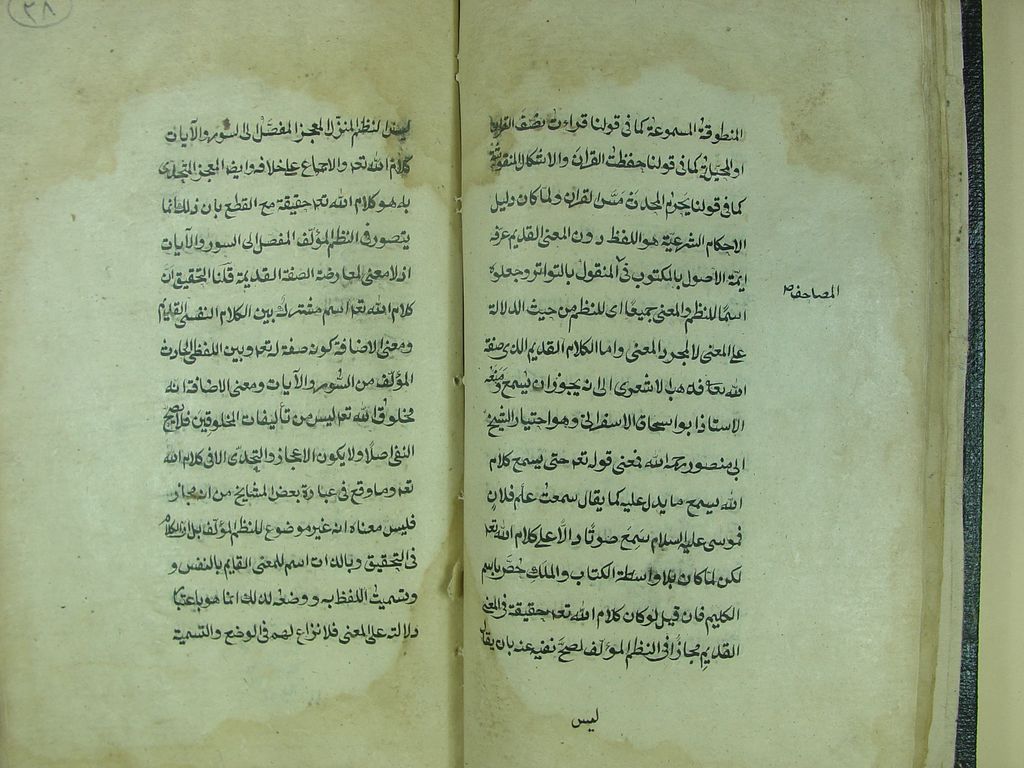 المنطوقة المسموعة كما في قولنا قرات نصف القران
او المخيلة كما في قولنا حفظت القران والاشكال المنقوشة
كما في قولنا يحرم المحدث مس القران ولما كان دليل
الاحكام الشرعية هو اللفظ دون المعنى القديم عرفه
ايمة الاصول بالمكتوب في المنقول بالتواتر وجعلوه
المصاحف
اسما للنظم والمعنى جميعا اى للنظم من حيث الدلالة
على المعنى لا لمجرد المعنى واما الكلام القديم الذى صفة
الله تعا فذهب الاشعرى الى انه يجوز ان يسمع ومنعه
الاستاذ ابو اسحاق الاسفراني وهو اختيار الشيخ
ابى منصور رحمه الله فمعنى قوله تعم حتى يسمع كلام
الله يسمع ما يدل عليه كما يقال سمعت علم فلان
فموسى عليه السلام سمع صوتا دالا على كلام الله تعم
لكن لما كان بلا واسطة الكتاب والملك خص باسم
الكليم فان قيل لو كان كلام الله تعم حقيقة في المعنى
القديم مجازا في النظم المؤلف لصح نفيه عنه بان يقال
ليس
٢٨
ليس النظم المنزل المعجز المفصل الى السور والآيات
كلام الله تعم والاجماع على خلافه وايضا المعجز المتحدى
به هو كلام الله تعم حقيقة مع القطع بان ذلك انما
يتصور في النظم المؤلف المفصل الى السور والآيات
اذ لا معنى لمعارضة الصفة القديمة قلنا التحقيق ان
كلام الله تعم اسم مشترك بين الكلام النفسى القديم
ومعنى الاضافة كونه صفة له تعم وبين اللفظى الحادث
المؤلف من السور والآيات ومعنى الاضافة انه
مخلوق الله تعم ليس من تأليفات المخلوقين فلا يصح
النفى اصلا ولا يكون الاعجاز والتحدى الا في كلام الله
تعم وما وقع في عبارة بعض المشايخ من انه مجاز
فليس معناه انه غير موضوع للنظم المؤلف بل ان الكلام
في التحقيق وبالذات اسم للمعنى القايم بالنفس و
وتسميت اللفظ به ووضعه لذلك انما هو باعتبا
دلالته على المعنى فلا نزاع لهم في الوضع والتسمية